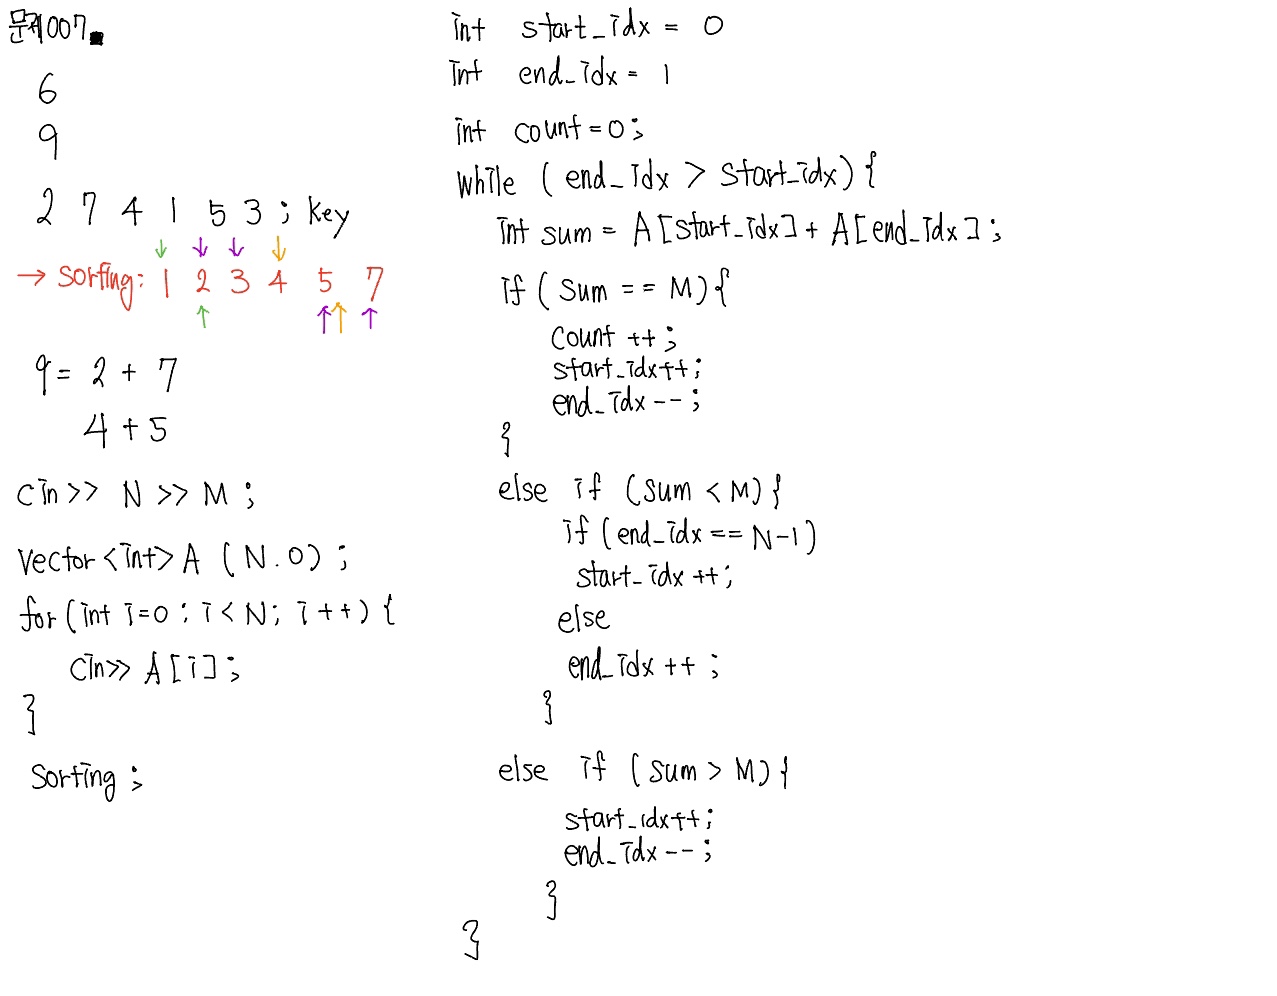 문제007.
6
9
2 7 4 1 5 3 ; key
→ sorting: 1 2 3 4 5 7
9 = 2 + 7
4 + 5
cin>> N >> M ;
vector<int> A (N.0) ;
for (int i=0 ; i < N; i ++) {
cin>> A [i] ;
}
Sorting ;
int start_idx = 0
int end_idx = 1
int count = 0;
while ( end_idx > start_idx) {
int sum = A [start_idx] + A [end_idx] ;
if ( sum == M) {
count ++ ;
start_idx++;
end_idx -- ;
}
else if (sum < M) {
if (end_idx == N-1)
start_idx ++;
else
end_idx ++ ;
}
else if ( sum > M) {
start_idx++;
end_idx -- ;
}
}